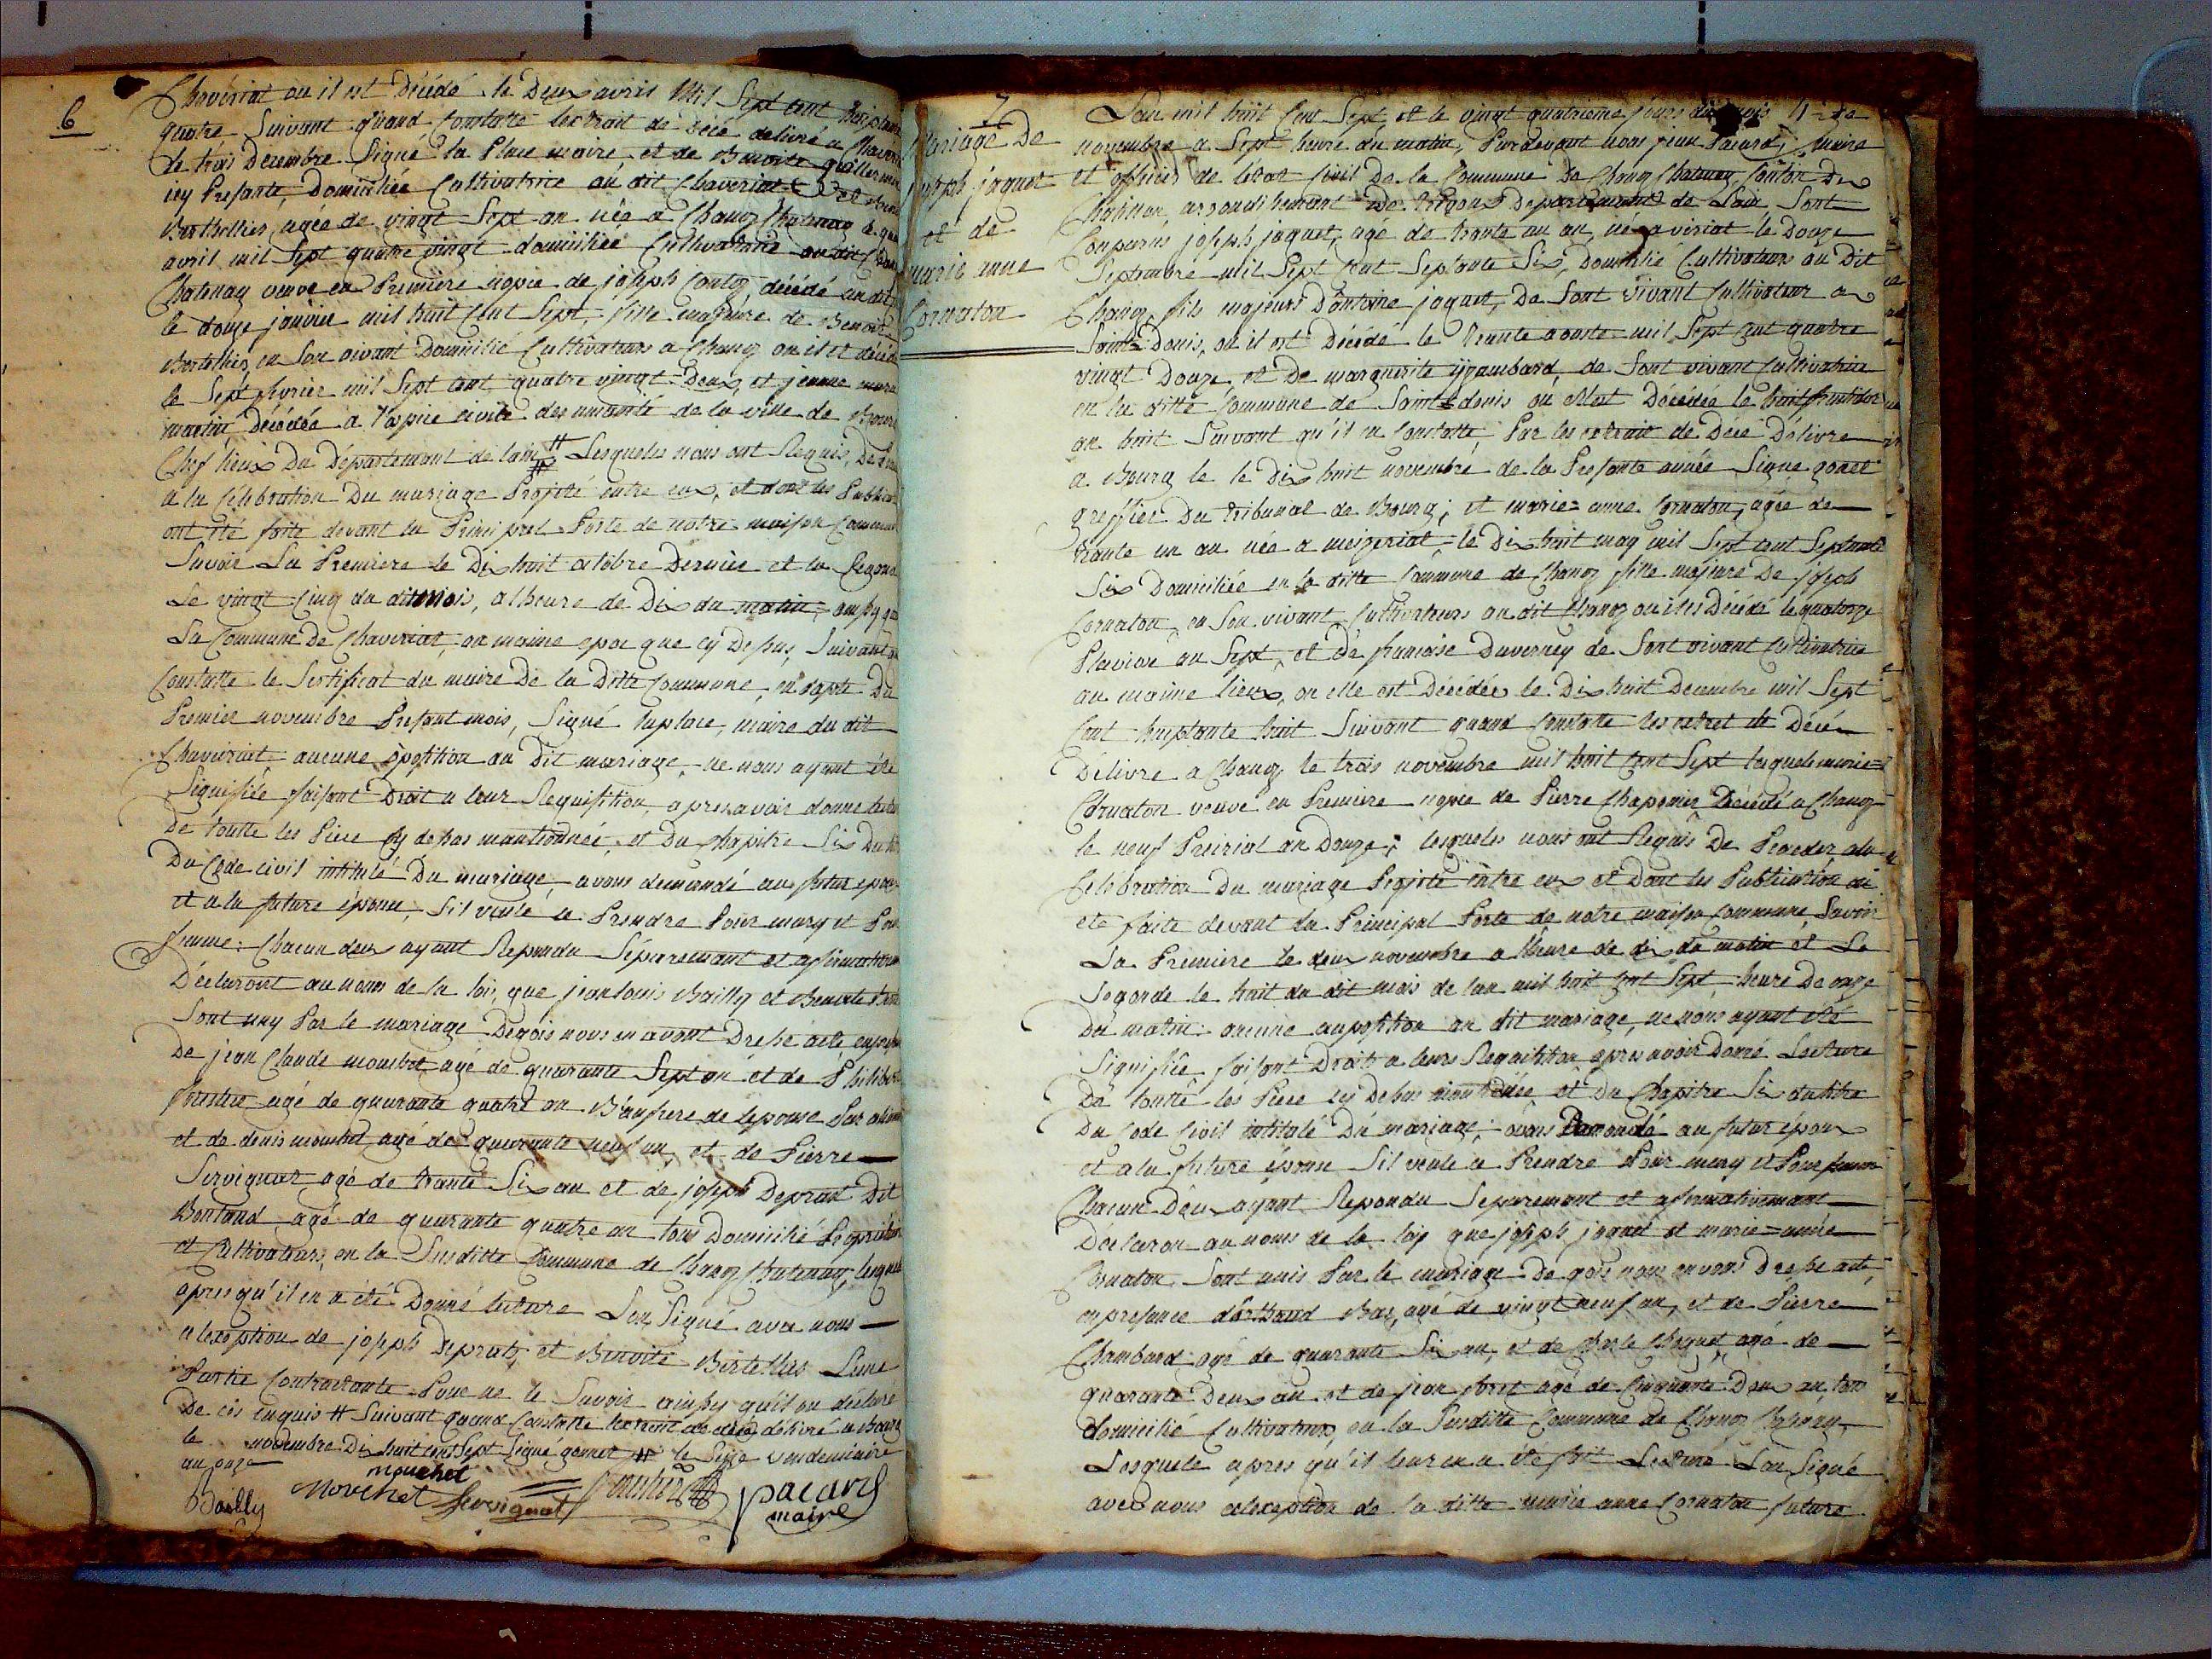 6
Chaveriat ou il est Décédé le Deux avril Mil Sept cent
quatre Suivant quand Constatte lextrait de décé delivré a Chaveri
le trois Decembre Signé la Place maire, et de Benoite
icy Presante, Domiciliée Cultivatrice au dit Chaveriat
Berthellier, agée de vingt Sept an née a Chanoz Chatenay le
avril mil Sept quatre vingt domiciliée Cultivatrice au dit
Chatenay veuve en Première nopce de joseph décédé au dit
le douze janvier mil huit Cent Sept, fille majeure de Benoit
Bertellier, en Son vivant Domicilié Cultivateur a Chanoz ou il est décédé
le Sept fevrier mil Sept cent quatre vingt Deux, et jeanne marie
martin Décédée a l'ospice civile des de la ville de Bourg
Chef lieux Du Département de lain # Lesqueles nous ont Requis, De
a la Célébration Du mariage Projeté entre eux, et dont les Public
ont été faite devant la Principal Porte de notre maison Commune
Savoir La Premiere le Dix huit octobre Dernier et la Segonde
Le vingt Cinq du dit mois, a lheure de Dix du matin,
La Commune De Chaveriat, au maime epoc que cy Desus, Suivant
Constatte le Sertificat du maire De la Ditte Commune, en date Du
Premier novembre Presant mois, Signé laplace, maire du dit
Chaveriat, aucune opotition au Dit mariage, ne nous ayant été
Signifiée faisant Droit a leur Requisition, apres avoir donné lecture
De toutte les Piece cy desus mantionnée, et Du Chapitre Six Du
Du Code civil intitulé Du mariage, avons demandé au futur epoux
et a la future épouse, S'il veule ce Prendre Pour mary et Pour
femme: Chacun deux ayant Repondu Séparemant et afirmativem
Déclaront au nom de la loi, que jean louis Bailly et Benoite
Sont uny Par le mariage Deqois nous en avont Dresse acte en
De jean Claude mouchet agé de quarante Sept an et de Philibert
agé de quarante quatre an Baufrere de lepouse Par
et de denis mouchet agé de quarante neuf an, et de Pierre
Servignat agé de trante Six an et de joseph Deprat Dit
Bontand agé de quarante quatre an tous Domicilié Propriétaire
et Cultivateurs, en la Susditte Commune de Chanoz Chatenay, lesquels
apres qu'il en a été Donné lecture Lon Signé avec nous
a lexeption de joseph Deprat, et Benoite Bertellier Lune
Partie Contractante Pour ne le Savoir ainsy qu'il on déclaré
De ces enquis # Suivant quand Constatte lextrait de décé délivré a Bourg
le novembre Dix huit cent Sept Signé gonnet # le Seize vendemiaire
an onze
mouchet
Bailly Mouchet Servignat pacard
maire
7
Mariage De
joseph jaquet
et de
marie anne
Cornaton
Lan mil huit Cent Sept et le vingt quatrieme jours du mois de
novembre a Sept heure du matin, Pardevant nous jean Pacard, maire
et officier de létat Civil De la Commune De Chanoz Chatenay, Canton De
Chatillon, arrondissement De trévoux Département de Lain Sont
Comparus joseph jaquet, agé de trante un an, né a viriat le Douze
Septembre mil Sept Cent Septante Six, Domicilié Cultivateur au Dit
Chanoz, fils majeur D'antoine jaquet, De Sont vivant Cultivateur a
Saint Denis, ou il est Décédé le trante mil Sept cent quatre
vingt Douze, et De marguerite, de Sont vivant Cultivatrice
en la ditte Commune de Saint denis ou ellest Décédée le huit fructidor
an huit Suivant qu'il en Constatte, Par les extrait de Decé Délivré
a Bourg le le Dix huit novembre de la Presante année Signé gonet
greffier Du tribunal de Bourg; et marie anne Cornaton, agée de
trante un an née a meizeriat, le Dix huit may mil Sept cent Septante
Six Domiciliée en la ditte Commune de Chanoz fille majeure De joseph
Cornaton, en Son vivant Cultivateurs au dit Chanoz ou il est Décédé le quatorze
Pluviose an Sept, et De francaise Duverney de Sont vivant Cultivatrice
au maime lieux, ou elle est Décédée le Dix huit Decembre mil Sept
Cent Septante huit Suivant quand Constatte les extret de Décé
Délivré a Chanoz le trois novembre mil huit cent Sept laquele marie
Cornaton veuve en Premiere nopce de Pierre Chaponier Décédé a Chanoz
le neuf Preirial an Douze; lesqueles nous ont Requis De Proceder a la
Celebration Du mariage Projeté entre eux et Dont les Publication on
eté faite devant la Principal Porte de notre maison Commune Savoir
La Premiere le deux novembre a lheure de dix du matin et La
Segonde le huit du dit mois de lan mil huit cent Sept, heure De onze
Du matin: aucune aupotition au dit mariage, ne nous ayant été
Signifiée faisant Droit a leurs Requisition, apres avoir Donné Lecture
De toutte les Piece cy Desus mantionée, et Du Chapitre Six du titre
Du Code Civil intitulé Du mariage; avons Demandé au futur épou
et a la future épouse S'il veule ce Prendre Pour mary et Pour femme
Chacun Deux ayant Repondu Separemant et afirmativemant
Déclaron au noms de la loy que joseph jaquet et marie anne
Cornaton, Sont unis Par le mariage De qois nous en avons Dresse acte,
en presance Bas, agé de vingt neuf an, et de Pierre
Chambard agé de quarante Six an, et de Charle agé de
quarante Deux an et de jean agé de Cinquante Deux an, tous
domicilié Cultivateur, en la Susditte Commune de Chanoz Chatenay,
Lesquele apres qu'il leur en a été fait Lecture Lon Signé
avec nous a lexeption de la ditte marie anne Cornaton future